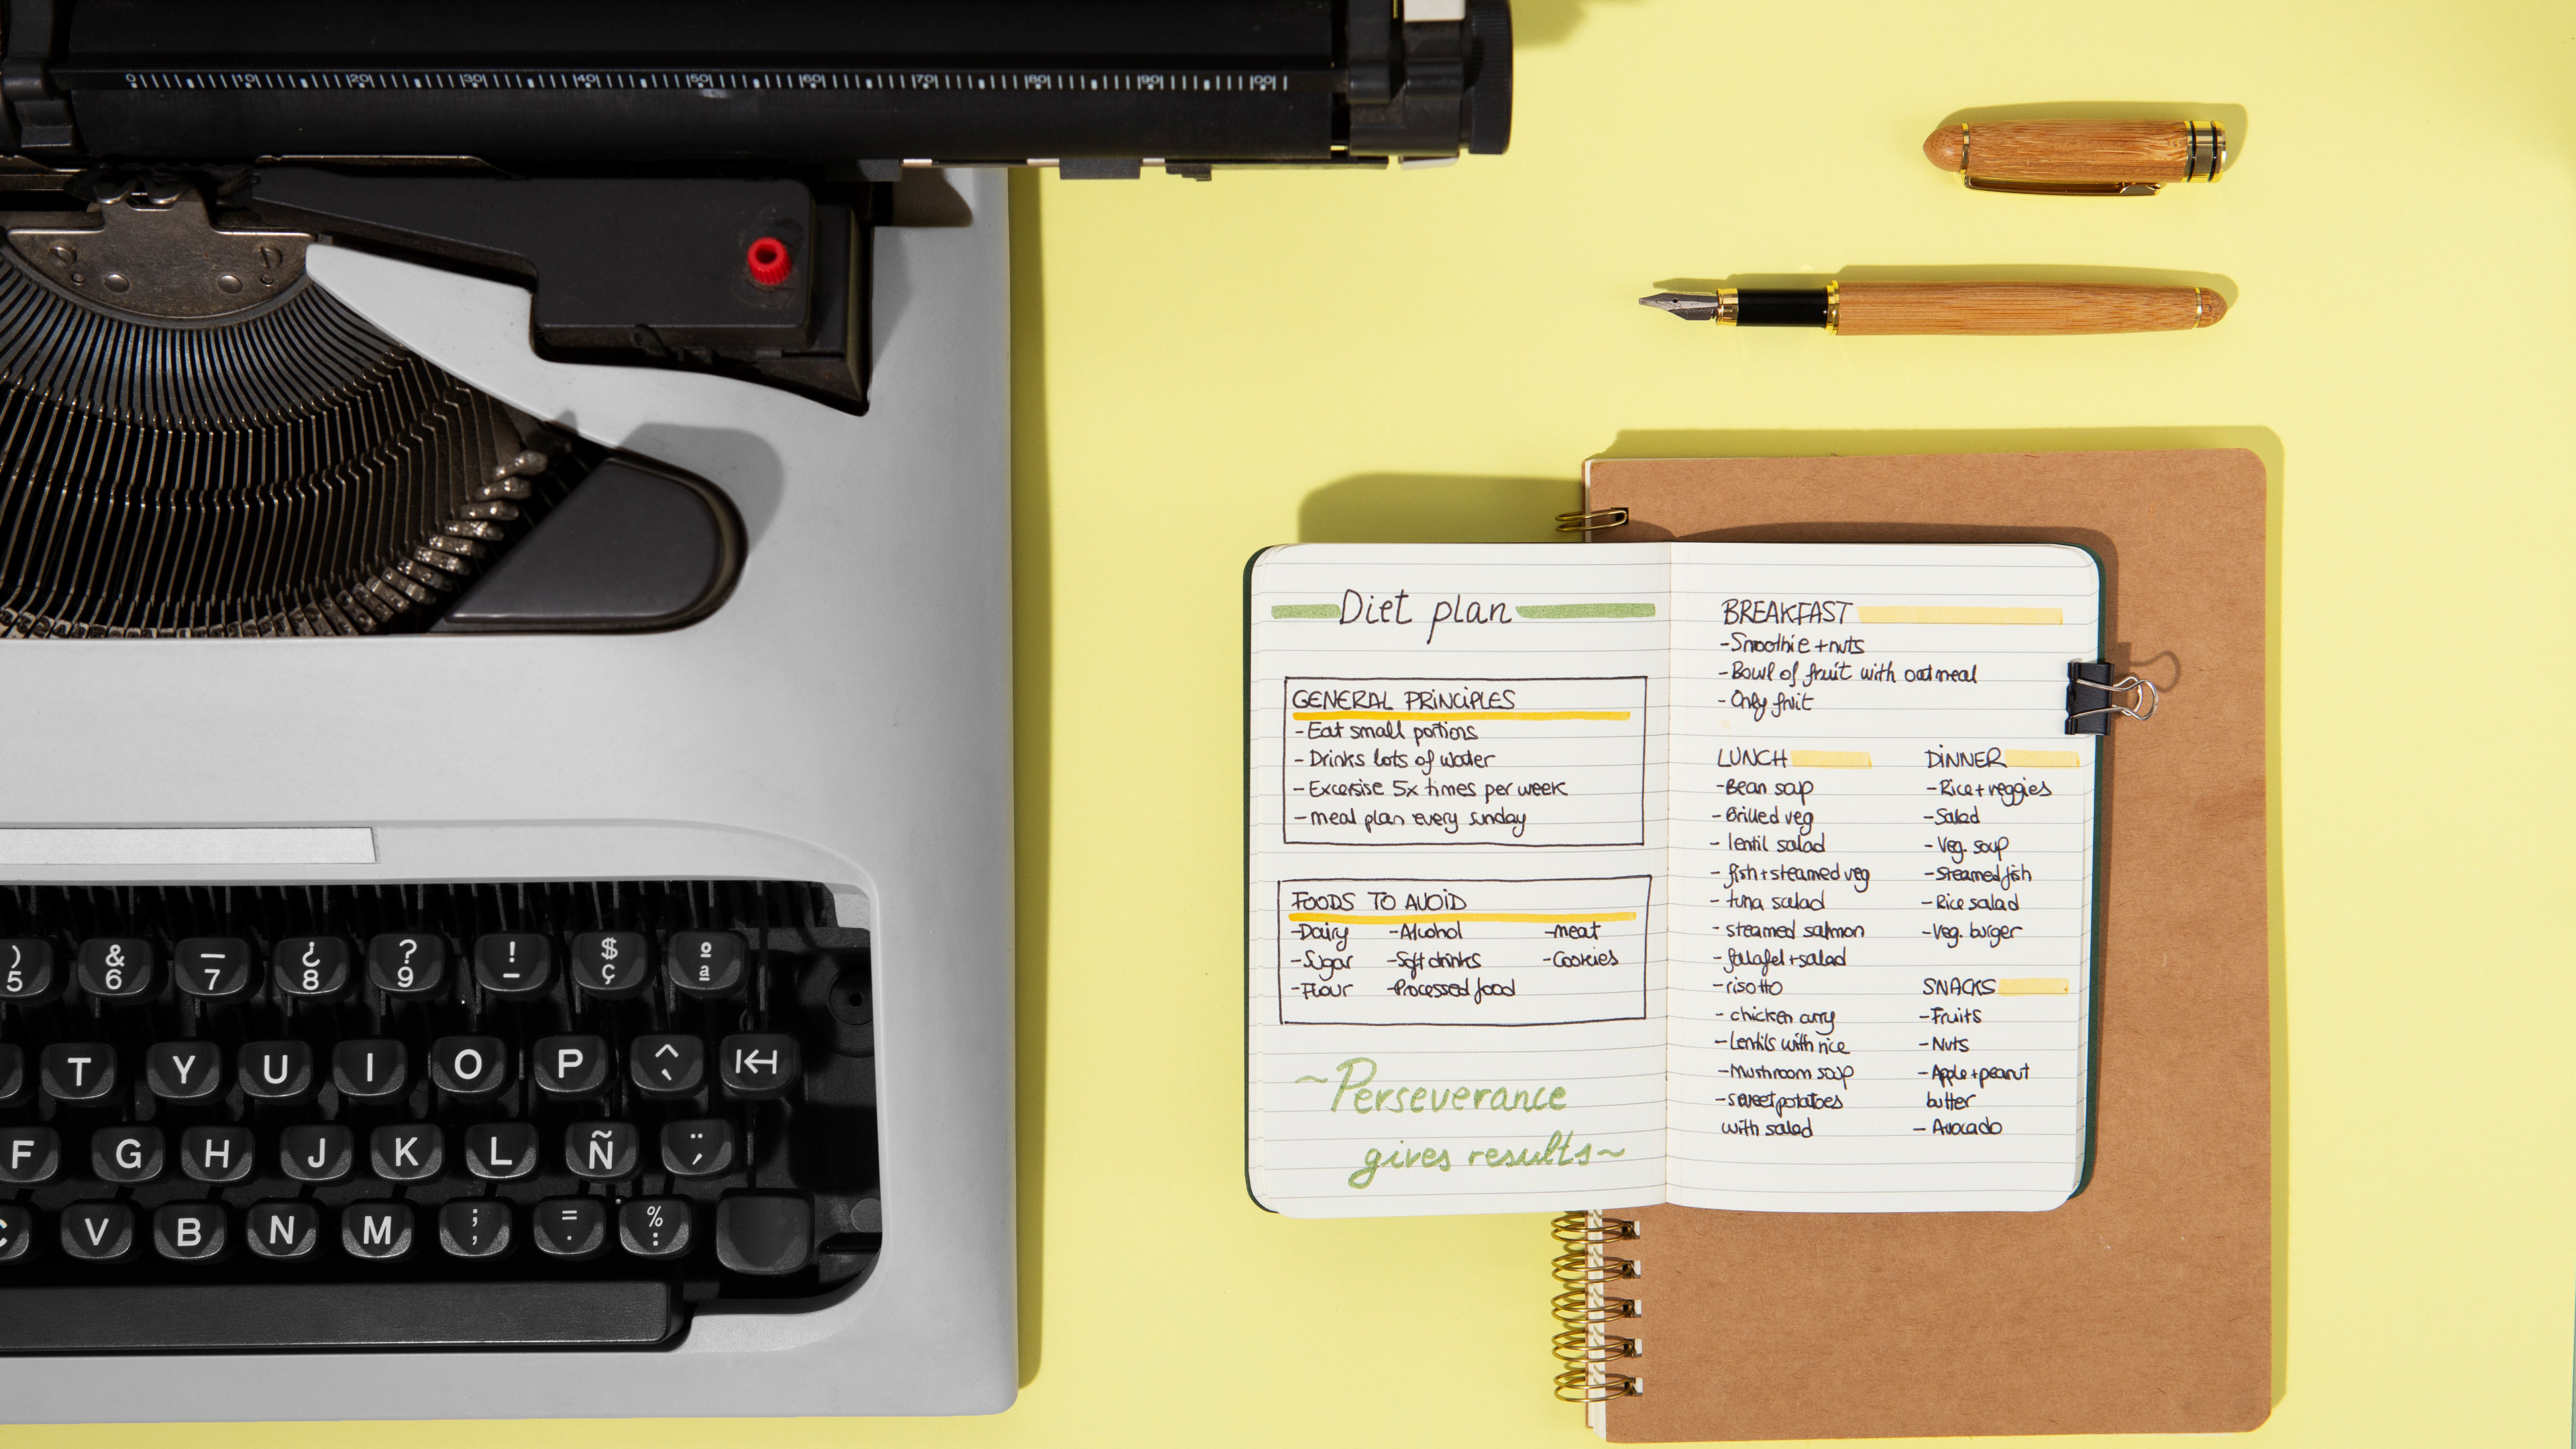 0 10 20 30 40 50 60 70 80 90 100
) 5 & 6 — 7 ¿ 8 ? 9 ! - $ ç º ª
T Y U I O P ^ `
F G H J K L Ñ ¨ ,
C V B N M ; ; = . % :
Diet plan
GENERAL PRiNCiPLES
- Eat small portions
- Drinks lots of water
- Excersise 5x times per week
- meal plan every sunday
FOODS TO AVOiD
-Dairy -Alcohol -meat
-Sugar -Soft drinks -Cookies
-Flour -Processed food
~Perseverance
gives results~
BREAKFAST
-Smoothie + nuts
-Bowl of fruit with oatmeal
- Only fruit
LUNCH
-Bean soup
-Grilled veg
- lentil salad
- fish + steamed veg
- tuna salad
- steamed salmon
- falafel + salad
- risotto
- chicken curry
- Lentils with rice
- Mushroom soup
- sweet potatoes
with salad
DiNNER
- Rice + veggies
- Salad
- Veg. soup
- Steamed fish
- Rice salad
- Veg. burger
SNACKS
- Fruits
- Nuts
- Apple + peanut
butter
- Avocado